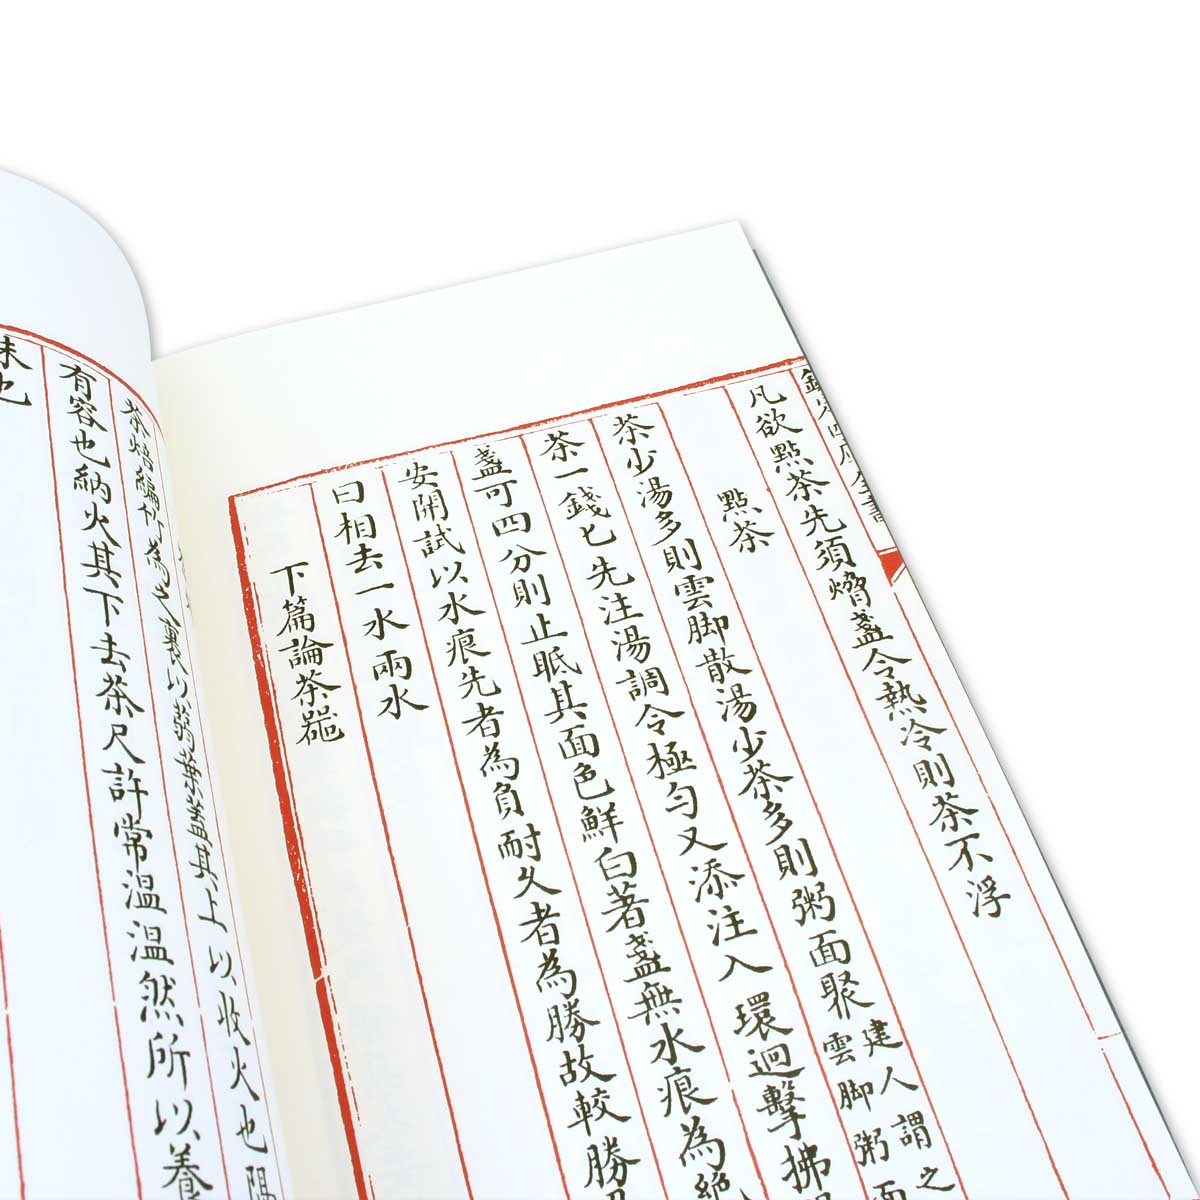 欽定四庫全書
凡欲點茶先須熁盞令熱冷則茶不浮
點茶
茶少湯多則雲脚散湯少茶多則粥面聚
建人謂之
雲脚粥面
茶一錢匕先注湯調令極勻又添注入環迴擊拂
盞可四分則止眂其面色鮮白著盞無水痕為絶
安開試以水痕先者為負耐久者為勝故較勝
曰相去一水兩水
下篇論茶器
茶焙編竹為之裹以蒻葉蓋其上以收火也隔
有容也納火其下去茶尺許常温温然所以養
味也